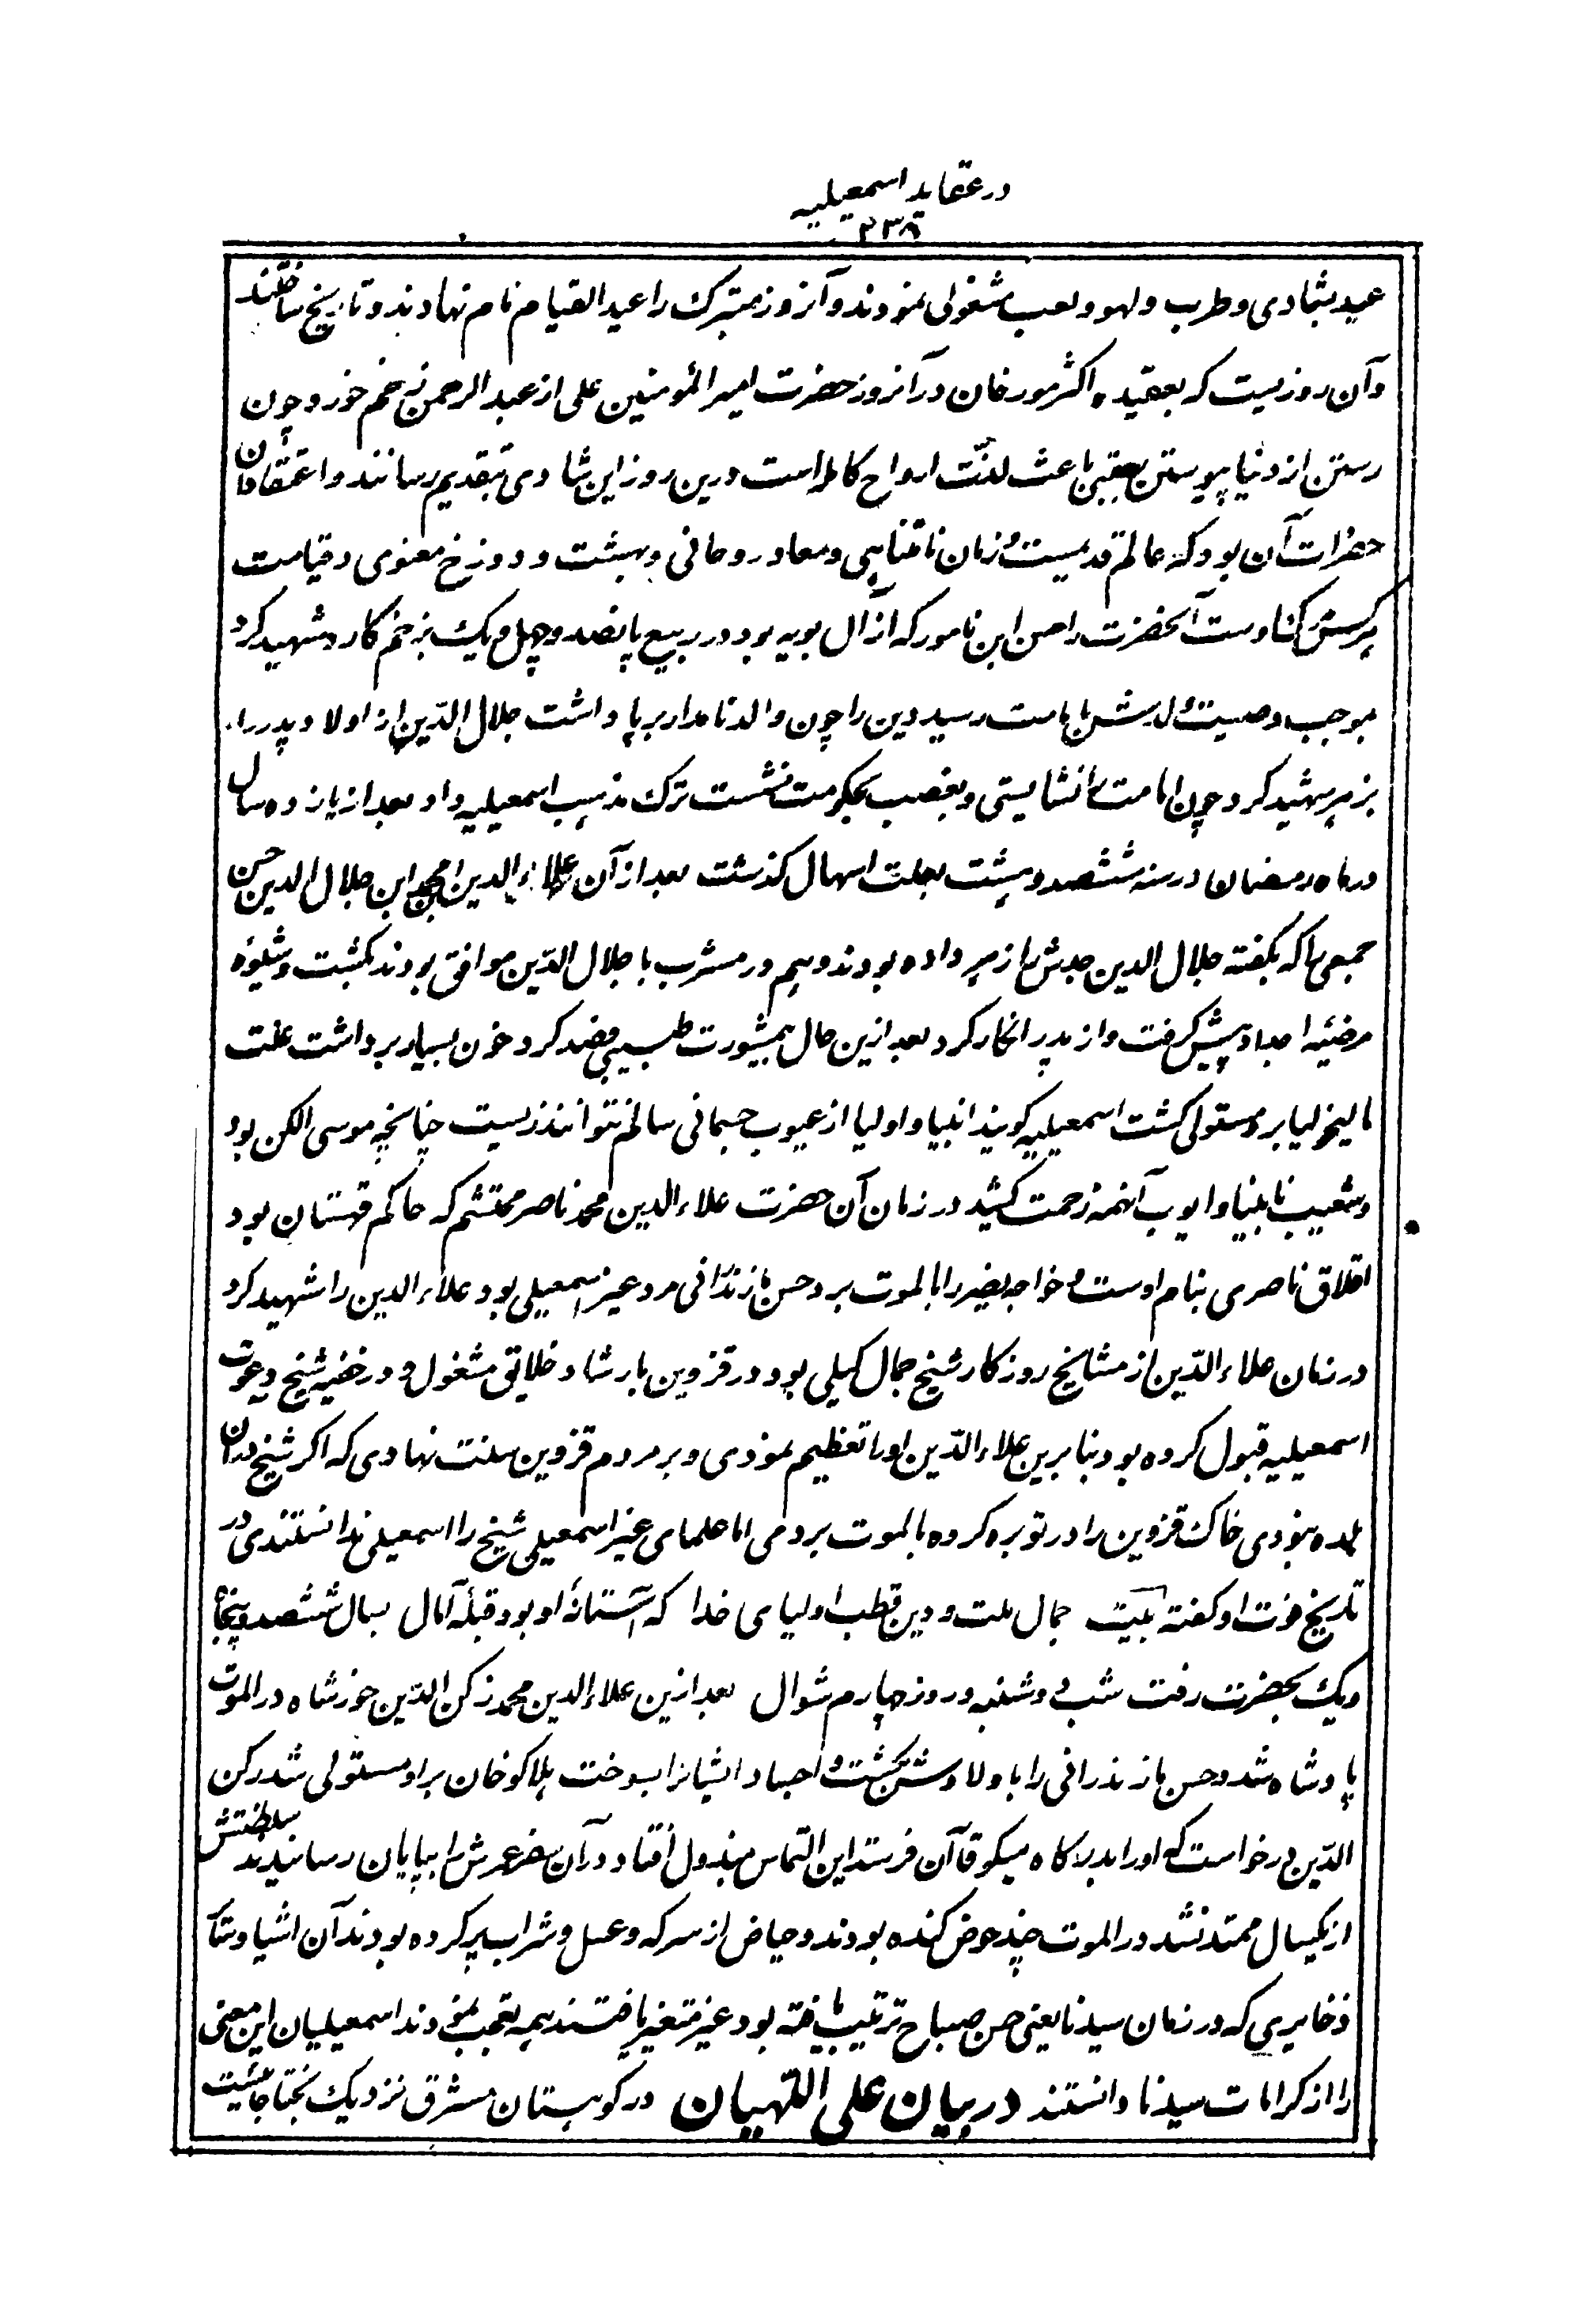 در عقاید اسمعیلیه
۲۳۸
عید بشادی و طرب و لهو و لعب مشغولی نمودند و آنروز متبرک را عید القیام نام نهادند و تاریخ ساختند
و آن روزیست که بعقیده اکثر مورخان در آنروز حضرت امیر المومنین علی از عبد الرحمن زخم خورد و چون
رستن از دنیا و پیوستن بعقبی باعث لذّت ارواح کامله است درین روز این شادی بتقدیم رسانند و اعتقاد آن
حضرات آن بود که عالم قدیمست و زمان نامتناهی و معاد روحانی و بهشت و دوزخ معنوی و قیامت
هرکس مرگ اوست آنحضرت را حسن ابن نامور که از آل بویه بود در ربیع پانصد و چهل و یک بزخم کارد شهید کرد
بموجب وصیت ولدش بامامت رسید دین را چون والد نامدار برپا داشت جلال الدّین از اولاد پدر را
بزهر شهید کرد چون امامت را نشایستی و بغصب بحکومت نشست ترک مذهب اسمعیلیه داد بعد از یازده سال
در ماه رمضان در سنه ششصد و هشت بعلت اسهال گذشت بعد از آن علاء الدین محمد ابن جلال الدین حسن
جمعی را که بگفته جلال الدین جدش را زهر داده بودند و هم در مشرب با جلال الدّین موافق بودند بکشت و شیوهٔ
مرضیّه اجداد پیش گرفت و از پدر انکار کرد بعد ازین حال بمشورت طبیبی فصد کرد خون بسیار برداشت علت
مالیخولیا برو مستولی گشت اسمعیلیه گویند انبیا و اولیا از عیوب جسمانی سالم نتوانند زیست چنانچه موسی الکن بود
و شعیب نابینا و ایوب آنهمه زحمت کشید در زمان آن حضرت علاء الدین محمد ناصر محتشم که حاکم قهستان بود
اخلاق ناصری بنام اوست و خواجه نصیر را بالموت برد حسن مازندرانی مرد غیر اسمعیلی بود علاء الدین را شهید کرد
در زمان علاء الدّین از مشایخ روزکار شیخ جمال کیلی بود در قزوین بارشاد خلایق مشغول و در خفیه شیخ دعوت
اسمعیلیه قبول کرده بود بنا برین علاء الدّین اورا تعظیم نمودی و بر مردم قزوین منت نهادی که اکر شیخ در آن
بلده نبودی خاک قزوین را در توبره کرده بالموت بردمی اما علمای غیر اسمعیلی شیخ را اسمعیلی ندانستندی در
تاریخ فوت او گفته بیت جمال ملت و دین قطب اولیای خدا که آستانهٔ او بود قبلهٔ آمال بسال ششصد و پنجاه
و یک بحضرت رفت شب دوشنبه و روز چهارم شوال بعد ازین علاء الدین محمد رکن الدّین خورشاه در الموت
پادشاه شد و حسن مازندرانی را با اولادش بکشت و اجساد ایشانرا بسوخت هلاکو خان برو مستولی شد رکن
الدّین درخواست که اورا بدرکاه منکو قاآن فرستد این التماس مبذول افتاد در آن سفر عمرش را بپایان رسانیدند سلطنتش
از یکسال ممتد نشد در الموت چند حوض کنده بودند و حیاض از سرکه و عسل و شراب پر کرده بودند آن اشیا و سائر
ذخایری که در زمان سیدنا یعنی حسن صباح ترتیب یافته بود غیر متغیر یافتند همه تعجب نمودند اسمعیلیان این معنی
را از کرامات سیدنا دانستند در بیان علی اللّهیان در کوهستان مشرق نزدیک بختا جائیست